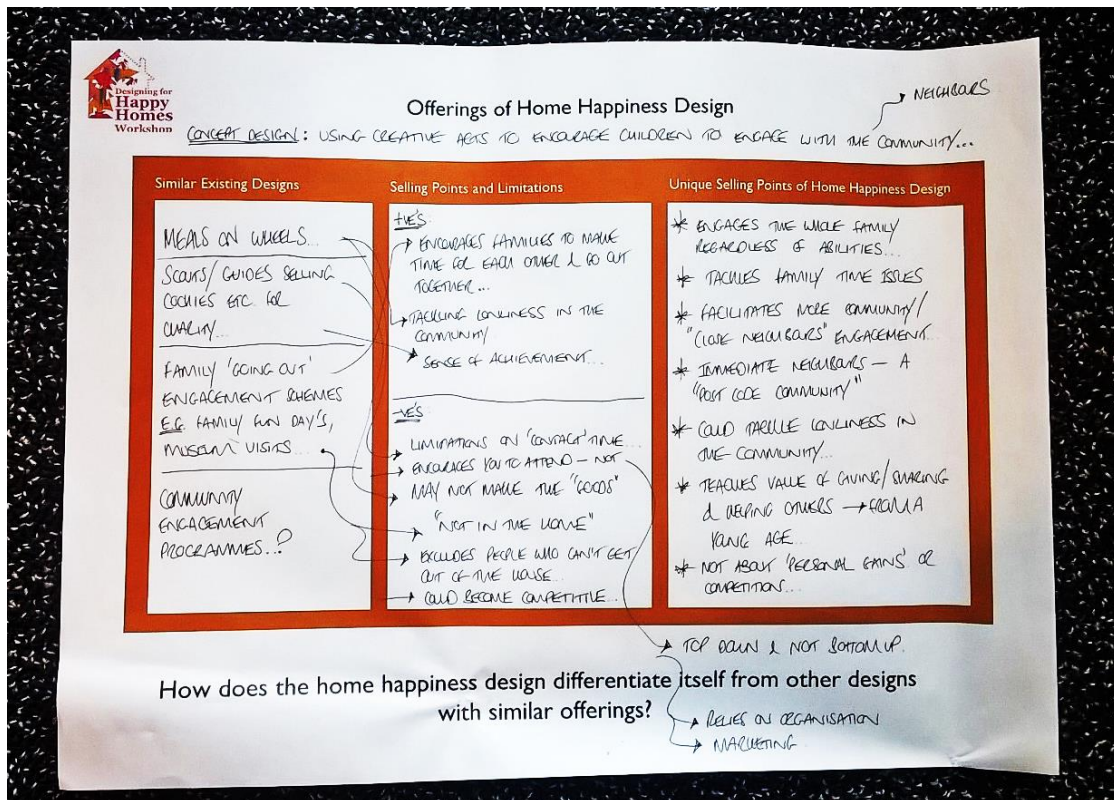 Designing for
Happy
Homes
Workshop
Offerings of Home Happiness Design
NEIGHBORS
CONCEPT DESIGN: USING CREATIVE ACTS TO ENCOURAGE CHILDREN TO ENGAGE WITH THE COMMUNITY...
Similar Existing Designs
MEALS ON WHEELS...
SCOUTS/GUIDES SELLING
COOKIES ETC. FOR
CHARITY...
FAMILY 'GOING OUT'
ENGAGEMENT SCHEMES
E.G. FAMILY FUN DAY'S,
MUSEUM VISITS...
COMMUNITY
ENGAGEMENT
PROGRAMMES...?
Selling Points and Limitations
+VE'S
ENCOURAGES FAMILIES TO MAKE
TIME FOR EACH OTHER & GO OUT
TOGETHER...
TACKLING LONLINESS IN THE
COMMUNITY
SENSE OF ACHIEVEMENT...
-VE'S
LIMITATIONS ON 'CONTACT' TIME...
ENCOURAGES YOU TO ATTEND - NOT
MAY NOT MAKE THE "GOODS"
"NOT IN THE HOME"
EXCLUDES PEOPLE WHO CAN'T GET
OUT OF THE HOUSE...
COULD BECOME COMPETITIVE...
Unique Selling Points of Home Happiness Design
* ENGAGES THE WHOLE FAMILY
REGARDLESS OF ABILITIES...
* TACKLES FAMILY TIME ISSUES
* FACILITATES MORE COMMUNITY/
"CLOSE NEIGHBORS" ENGAGEMENT...
* IMMEDIATE NEIGHBORS - A
"POST CODE COMMUNITY"
* COULD TACKLE LONLINESS IN
THE COMMUNITY...
* TEACHES VALUE OF GIVING/SHARING
& HELPING OTHERS → FROM A
YOUNG AGE...
* NOT ABOUT 'PERSONAL GAINS' OR
COMPETITION...
TOP DOWN & NOT BOTTOM UP.
How does the home happiness design differentiate itself from other designs
with similar offerings?
RELIES ON ORGANISATION
MARKETING